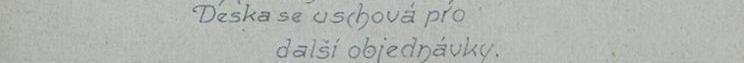 Deska se uschová pro
další objednávky.